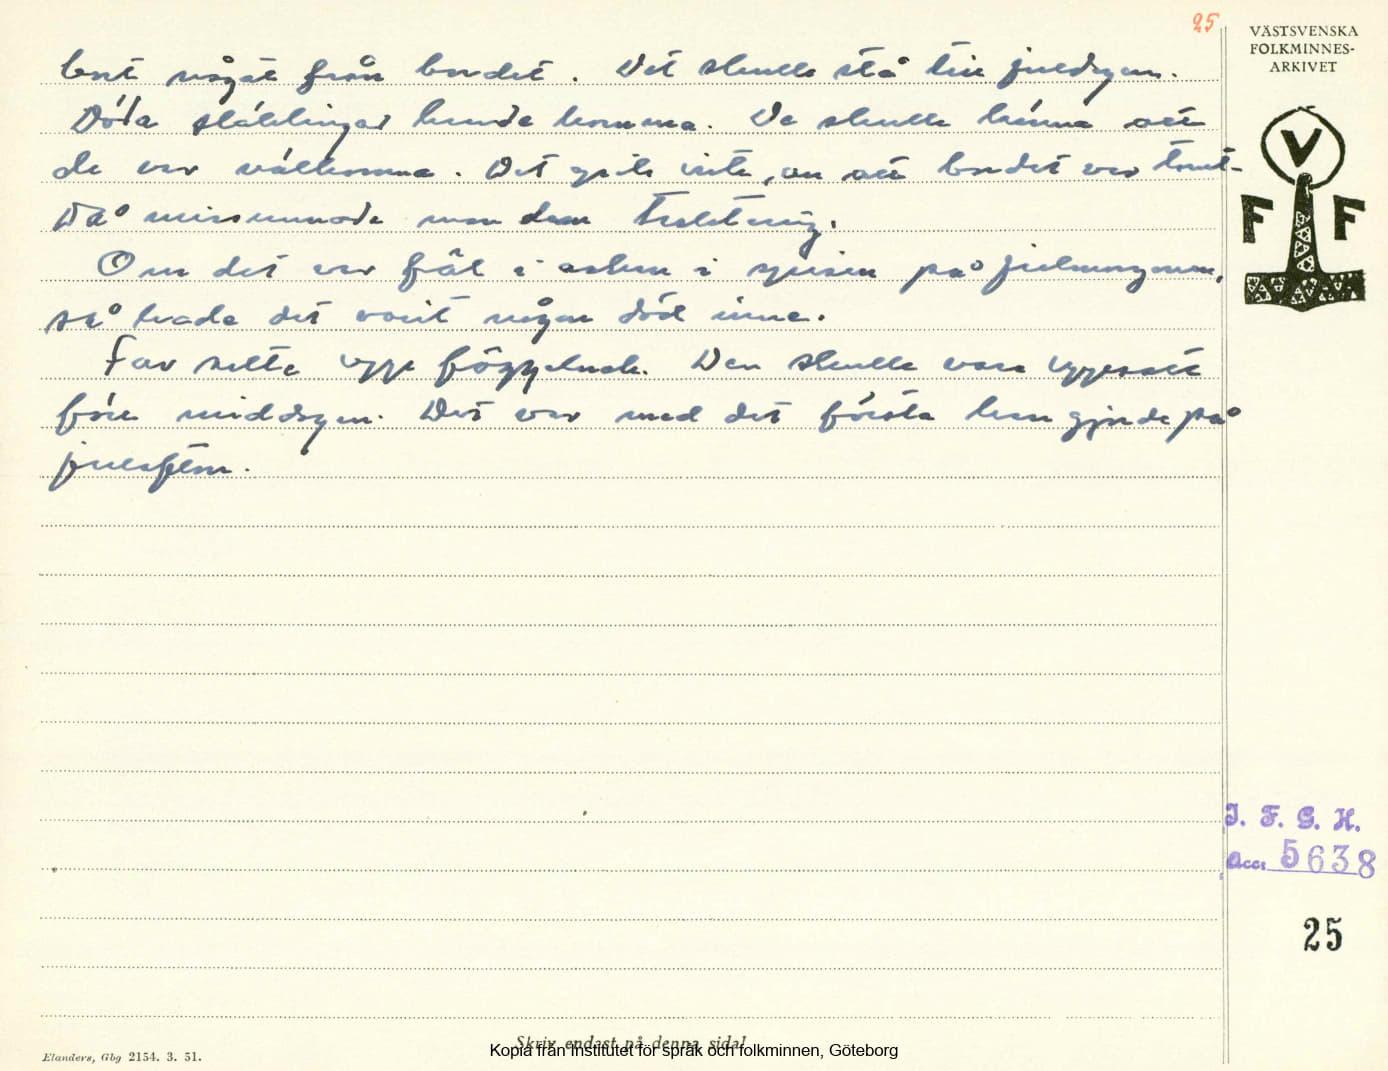 25
VÄSTSVENSKA
FOLKMINNES-
ARKIVET
bort något från bordet. Det skulle stå till juldagen.
Döda släktingar kunde komma. De skulle känna att
de var välkomna. Det gick inte, om att bordet var tomt.
Då missunnade man dem traktering.
Om det var fjät i askan i spisen på julmorgonen,
så hade det varit någon död inne.
Far satte upp Den skulle vara uppsatt
före middagen. Det var med det första han gjorde på
julafton.
V
F F
I. F. G. H.
Acc: 5638
25
Skriv endast på denna sida!
Kopia från Institutet för språk och folkminnen, Göteborg
Elanders, Gbg 2154. 3. 51.